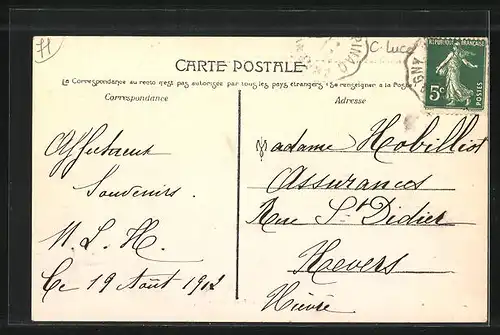 71
C. Luce
CARTE POSTALE
RÉPUBLIQUE FRANÇAISE
5c
POSTES
La Correspondance au recto n'est pas autorisée par tous les pays étrangers (Se renseigner à la Poste
Correspondance
Adresse
Affectueux
Souvenirs.
M. L. H.
Ce 19 Août 1912
Madame Hobilliot
Assurances
Rue St Didier
Nevers
Nièvre